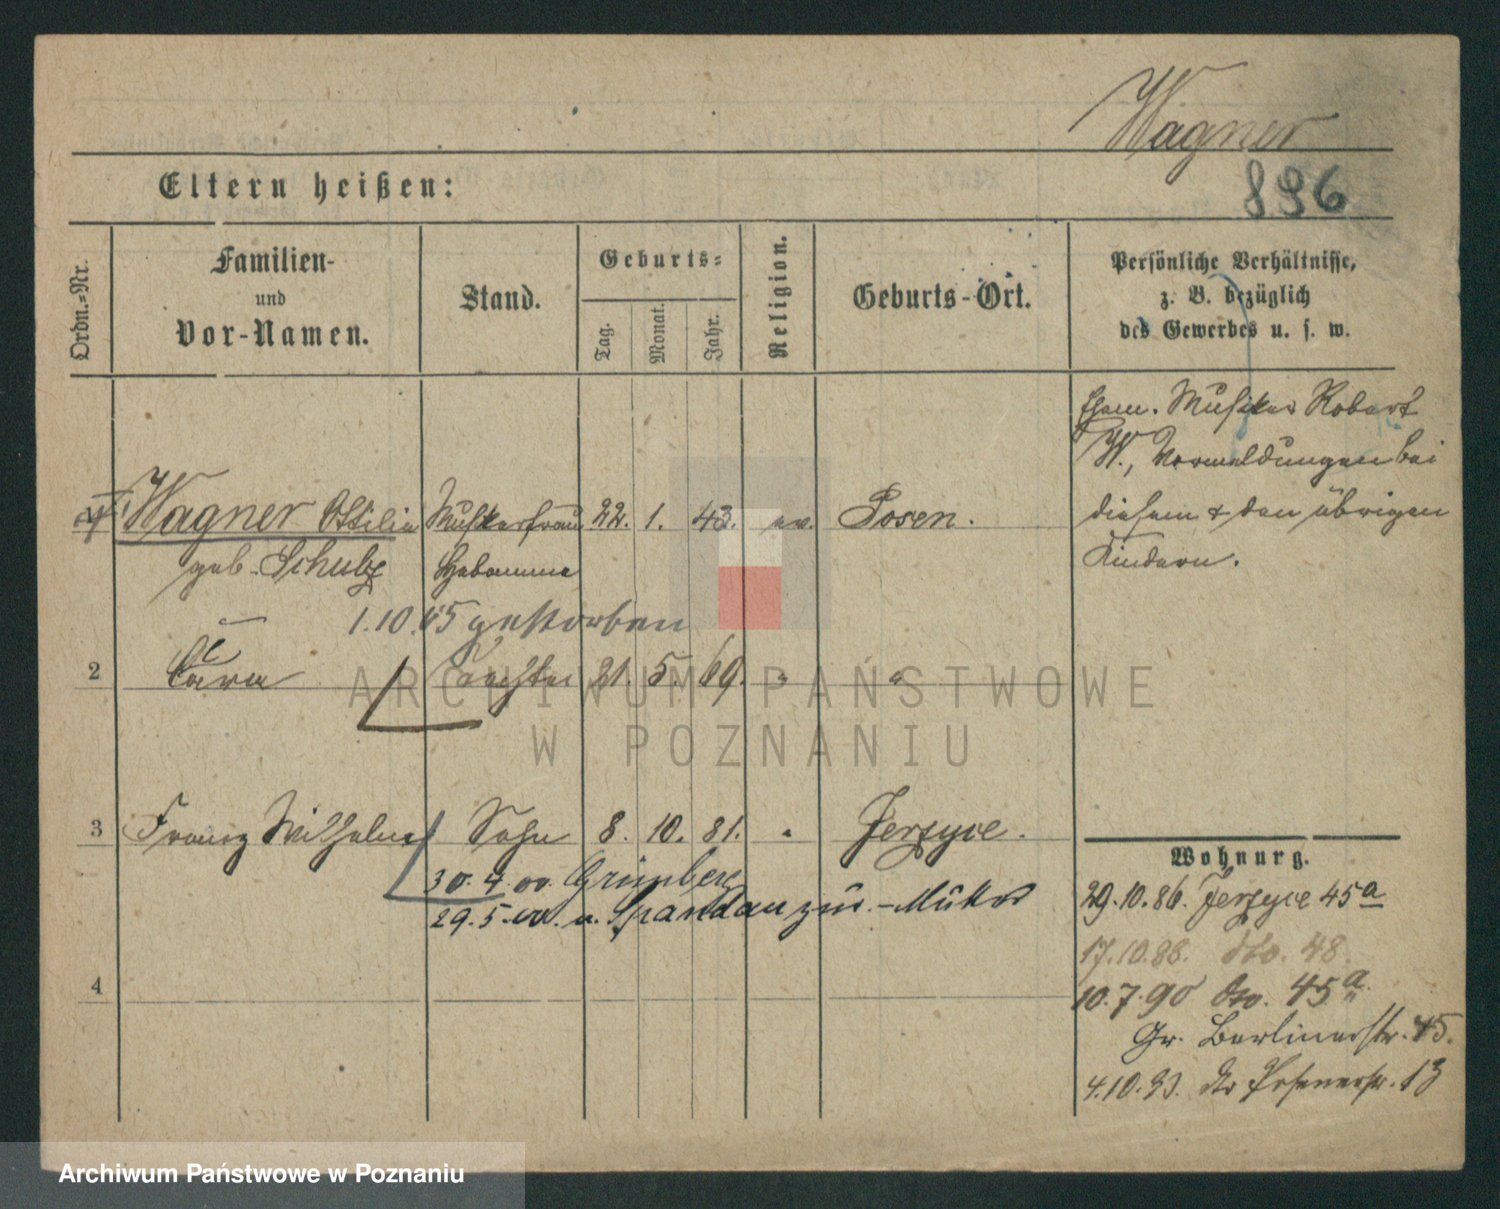 Wagner
896
Eltern heißen:
Ordn.=Nr.
Familien-
und
Vor-Namen.
Stand.
Geburts=
Tag.
Monat.
Jahr.
Religion.
Geburts-Ort.
Persönliche Verhältnisse,
z. B. bezüglich
des Gewerbes u. s. w.
Ehem. Musiker Robert
W., Vormeldungen bei
diesem & den übrigen
Kindern.
Wagner Ottilie Musikerfrau 22. 1. 43. ev. Posen.
geb. Schulz Hebamme
1.10. gestorben
2 Clara Tochter 21. 5. 69. " "
3 Franz Wilhelm Sohn 8. 10. 81. " Jerzyce.
30.4.00. Grünberg
29.5.00. n. Spandau zur Mutter
4
Wohnung.
29.10.86. Jerzyce 45a
17.10.88. dto. 48.
10.7.90 dto. 45a
Gr. Berlinerstr. 45.
4.10.93. Posenerstr. 13
ARCHIWUM PAŃSTWOWE
W POZNANIU
Archiwum Państwowe w Poznaniu